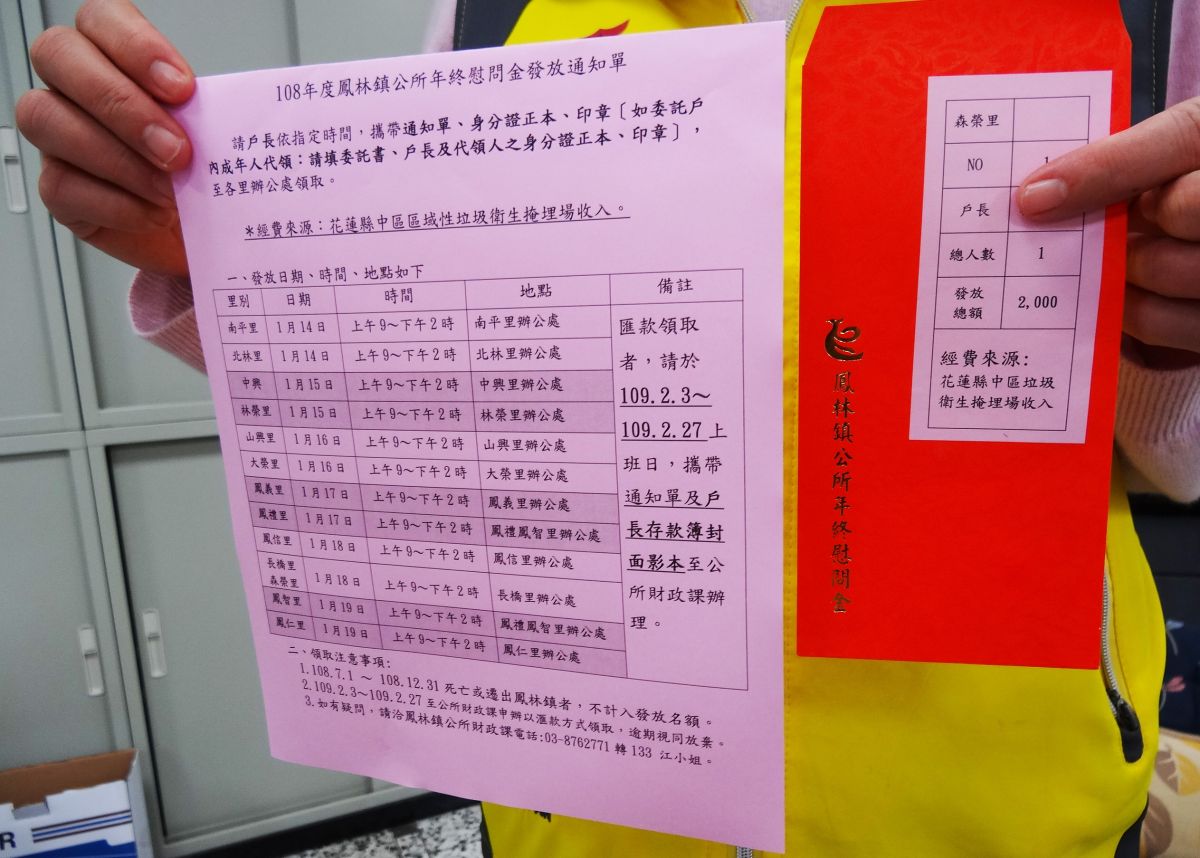 108年度鳳林鎮公所年終慰問金發放通知單
請戶長依指定時間，攜帶通知單、身分證正本、印章〔如委託戶
內成年人代領：請填委託書、戶長及代領人之身分證正本、印章〕，
至各里辦公處領取。
＊經費來源：花蓮縣中區區域性垃圾衛生掩埋場收入。
一、發放日期、時間、地點如下
里別 日期 時間 地點 備註
南平里 1月14日 上午9～下午2時 南平里辦公處
北林里 1月14日 上午9～下午2時 北林里辦公處
中興 1月15日 上午9～下午2時 中興里辦公處
林榮里 1月15日 上午9～下午2時 林榮里辦公處
山興里 1月16日 上午9～下午2時 山興里辦公處
大榮里 1月16日 上午9～下午2時 大榮里辦公處
鳳義里 1月17日 上午9～下午2時 鳳義里辦公處
鳳禮里 1月17日 上午9～下午2時 鳳禮鳳智里辦公處
鳳信里 1月18日 上午9～下午2時 鳳信里辦公處
長橋里
森榮里 1月18日 上午9～下午2時 長橋里辦公處
鳳智里 1月19日 上午9～下午2時 鳳禮鳳智里辦公處
鳳仁里 1月19日 上午9～下午2時 鳳仁里辦公處
匯款領取
者，請於
109.2.3～
109.2.27上
班日，攜帶
通知單及戶
長存款簿封
面影本至公
所財政課辦
理。
二、領取注意事項:
1.108.7.1 ～ 108.12.31 死亡或遷出鳳林鎮者，不計入發放名額。
2.109.2.3～109.2.27 至公所財政課申辦以匯款方式領取，逾期視同放棄。
3.如有疑問，請洽鳳林鎮公所財政課電話:03-8762771 轉 133 江小姐。
森榮里
NO 1
戶長
總人數 1
發放
總額 2,000
經費來源:
花蓮縣中區垃圾
衛生掩埋場收入
鳳林鎮公所年終慰問金
R